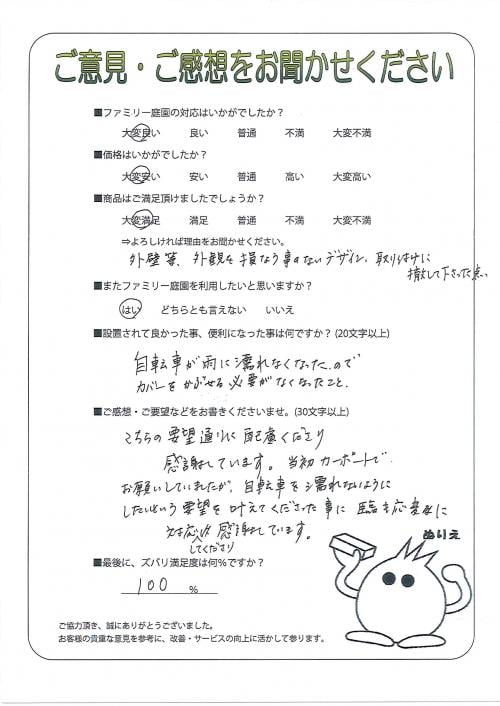 ご意見・ご感想をお聞かせください
■ファミリー庭園の対応はいかがでしたか？
大変良い 良い 普通 不満 大変不満
■価格はいかがでしたか？
大変安い 安い 普通 高い 大変高い
■商品はご満足頂けましたでしょうか？
大変満足 満足 普通 不満 大変不満
⇒よろしければ理由をお聞かせください。
外壁等、外観を損なう事のないデザイン。取り付けに
徹して下さった点
■またファミリー庭園を利用したいと思いますか？
はい どちらとも言えない いいえ
■設置されて良かった事、便利になった事は何ですか？(20文字以上)
自転車が雨に濡れなくなったので
カバーをかぶせる必要がなくなったこと.
■ご感想・ご要望などをお書きくださいませ。(30文字以上)
こちらの要望通りに配慮くださり
感謝しています。当初カーポートで
お願いしていましたが、自転車を濡れないように
したいという要望を叶えてくださった事に 臨機応変に
対応 感謝しています。
してくださり
ぬりえ
■最後に、ズバリ満足度は何％ですか？
100 ％
ご協力頂き、誠にありがとうございました。
お客様の貴重な意見を参考に、改善・サービスの向上に活かして参ります。